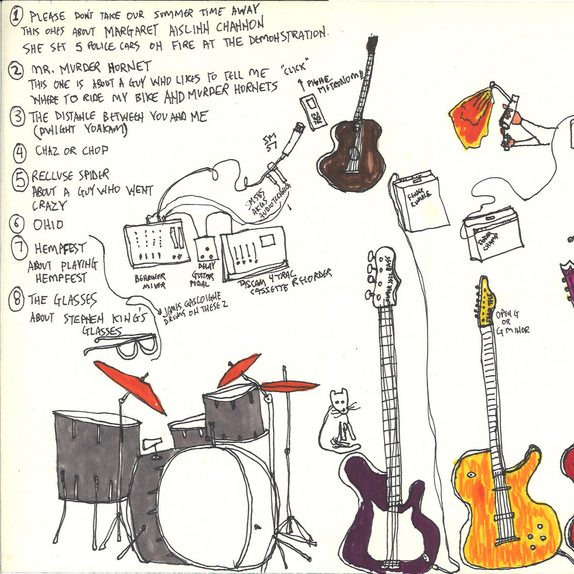 ① PLEASE DON'T TAKE OUR SUMMER TIME AWAY
THIS ONES ABOUT MARGARET AISLINN CHANNON
SHE SET 5 POLICE CARS ON FIRE AT THE DEMONSTRATION.
② MR. MURDER HORNET
THIS ONE IS ABOUT A GUY WHO LIKES TO TELL ME
WHERE TO RIDE MY BIKE AND MURDER HORNETS
③ THE DISTANCE BETWEEN YOU AND ME
(DWIGHT YOAKAM)
④ CHAZ OR CHOP
⑤ RECLUSE SPIDER
ABOUT A GUY WHO WENT
CRAZY
⑥ OHIO
⑦ HEMPFEST
ABOUT PLAYING
HEMPFEST
⑧ THE GLASSES
ABOUT STEPHEN KING'S
GLASSES
"CLICK"
PHONE
METRONOME
SM
57
BEHRINGER
MIXER
DELAY
GUITAR
PEDAL
TASCAM 4 TRAC
CASSETTE RECORDER
JANIS GASOLIGHE
DRUMS ON THESE 2
OPEN G
OR
G MINOR